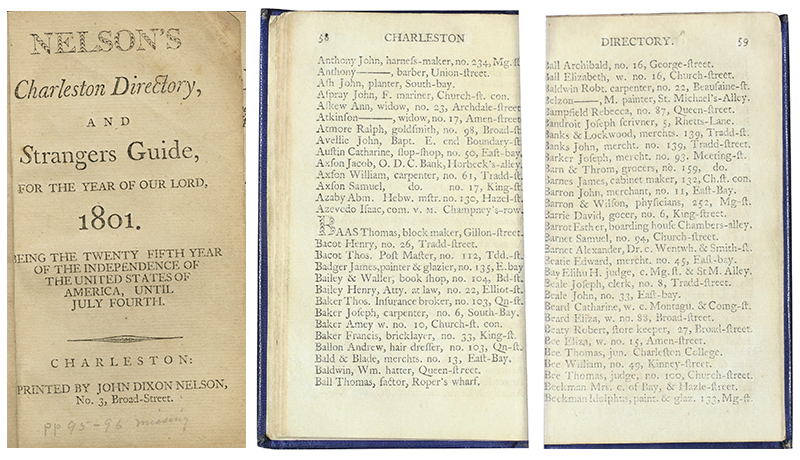 NELSON'S
Charleston Directory,
AND
Strangers Guide,
FOR THE YEAR OF OUR LORD,
1801.
BEING THE TWENTY FIFTH YEAR
OF THE INDEPENDENCE OF
THE UNITED STATES OF
AMERICA, UNTIL
JULY FOURTH.
CHARLESTON:
PRINTED BY JOHN DIXON NELSON,
No. 3, Broad-Street.
pp 95-96 missing
58 CHARLESTON
Anthony John, harneſs-maker, no. 234, Mg. ſt
Anthony———, barber, Union-ſtreet.
Aſh John, planter, South-bay.
Aſpray John, F. mariner, Church-ſt. con.
Aſkew Ann, widow, no. 23, Archdale-ſtreet
Atkinſon———, widow, no. 17, Amen-ſtreet
Atmore Ralph, goldſmith, no. 98, Broad-ſt
Avellie John, Bapt. E. end Boundary-ſt
Auſtin Catharine, ſlop-ſhop, no. 50, Eaſt-bay
Axſon Jacob, O. D. C. Bank, Horbeck's-alley
Axſon William, carpenter, no. 61, Tradd-ſt.
Axſon Samuel, do. no. 17, King-ſt.
Azaby Abm. Hebw. mſtr. no. 130, Hazel-ſt.
Azevedo Iſaac, com. v. M. Champney's-row.
BAAS Thomas, block maker, Gillon-ſtreet.
Bacot Henry, no. 26, Tradd-ſtreet.
Bacot Thos. Poſt Maſter, no. 112, Tdd.-ſt.
Badger James, painter & glazier, no. 135, E. bay
Bailey & Waller, book ſhop, no. 104, Bd-ſt.
Bailey Henry, Atty. at law, no. 22, Elliot-ſt.
Baker Thos. Inſurance broker, no. 103, Qn-ſt.
Baker Joſeph, carpenter, no. 6, South-Bay.
Baker Amey w. no. 10, Church-ſt. con.
Baker Francis, bricklayer, no. 33, King-ſt.
Ballon Andrew, hair dreſſer, no. 103, Qn-ſt.
Bald & Blade, merchts. no. 13, Eaſt-Bay.
Baldwin, Wm. hatter, Queen-ſtreet.
Ball Thomas, factor, Roper's wharf.
DIRECTORY. 59
Ball Archibald, no. 16, George-ſtreet.
Bail Elizabeth, w. no. 16, Church-ſtreet.
Baldwin Robt. carpenter, no. 22, Beaufaine-ſt.
Belzon———, M. painter, St. Michael's-Alley.
Bampfield Rebecca, no. 87, Queen-ſtreet.
Bandroit Joſeph ſcrivner, 5, Rhetts-Lane.
Banks & Lockwood, merchts. 139, Tradd-ſt.
Banks John, mercht. no. 139, Tradd-ſtreet.
Barker Joſeph, mercht. no. 93. Meeting-ſt.
Barn & Throm, grocers, no. 159, do.
Barnes James, cabinet maker, 132, Ch. ſt. con.
Barron John, merchant, no. 11, Eaſt-Bay.
Barron & Wilſon, phyſicians, 252, Mg-ſt.
Barrie David, gocer, no. 6, King-ſtreet.
Barrot Eſther, boarding houſe Chambers-alley.
Barnet Samuel, no. 94, Church-ſtreet.
Barnet Alexander, Dr. c. Wentwh. & Smith-ſt.
Beatie Edward, mercht. no. 45, Eaſt-bay.
Bay Elihu H. judge, c. Mg. ſt. & St M. Alley.
Beale Joſeph, clerk, no. 8, Tradd-ſtreet.
Beale John, no. 33, Eaſt-bay.
Beard Catharine, w. c. Montagu. & Comg-ſt.
Beard Eliza, w. no. 88, Broad-ſtreet.
Beaty Robert, ſtore keeper, 27, Broad-ſtreet.
Bee Eliza, w. no. 15, Amen-ſtreet.
Bee Thomas, jun. Charleſton College.
Bee William, no. 49, Kinney-ſtreet.
Bee Thomas, judge, no. 100, Church-ſtreet.
Beekman Mrs. c. of Bay, & Hazle-ſtreet.
Beekman paint. & glaz. 133, Mg-ſt.